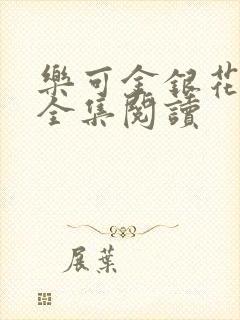 樂可金銀花
全集閱讀
展葉